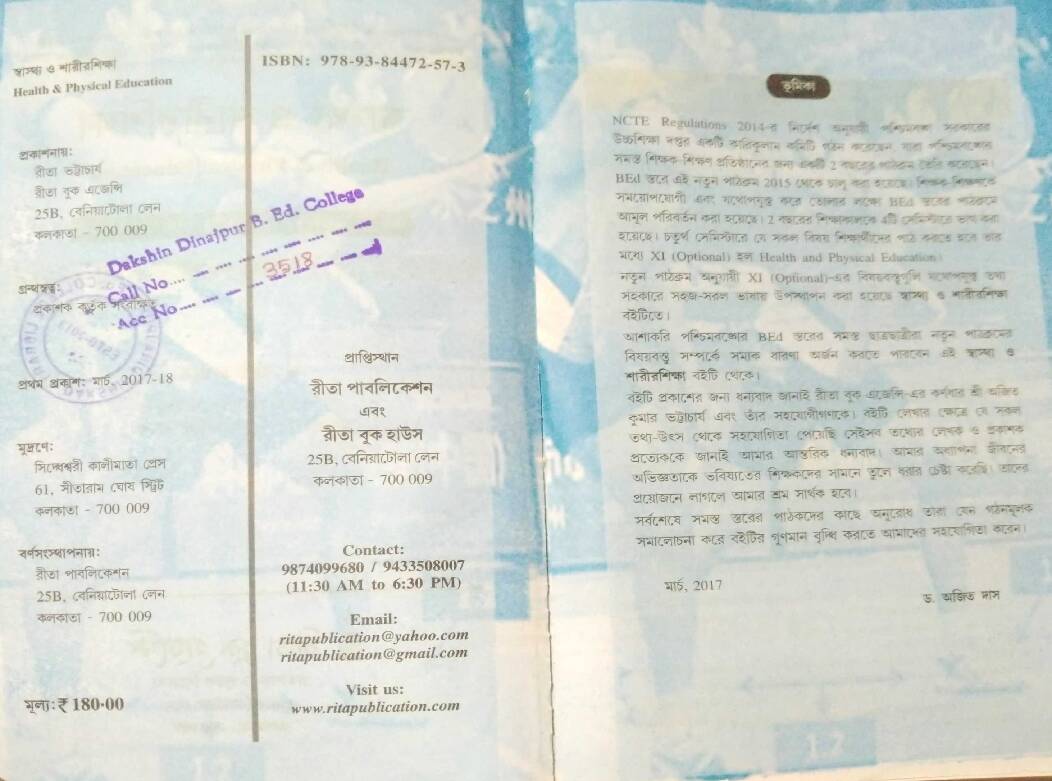 স্বাস্থ্য ও শারীরশিক্ষা
Health & Physical Education
প্রকাশনায়:
রীতা ভট্টাচার্য
রীতা বুক এজেন্সি
25B, বেনিয়াটোলা লেন
কলকাতা - 700 009
গ্রন্থস্বত্ব:
প্রকাশক কর্তৃক সংরক্ষিত
প্রথম প্রকাশ: মার্চ, 2017-18
মুদ্রণে:
সিদ্ধেশ্বরী কালীমাতা প্রেস
61, সীতারাম ঘোষ স্ট্রিট
কলকাতা - 700 009
বর্ণসংস্থাপনায়:
রীতা পাবলিকেশন
25B, বেনিয়াটোলা লেন
কলকাতা - 700 009
মূল্য: ₹ 180·00
Dakshin Dinajpur B. Ed. College
Call No....
Acc No.... 3518
ISBN: 978-93-84472-57-3
প্রাপ্তিস্থান
রীতা পাবলিকেশন
এবং
রীতা বুক হাউস
25B, বেনিয়াটোলা লেন
কলকাতা - 700 009
Contact:
9874099680 / 9433508007
(11:30 AM to 6:30 PM)
Email:
ritapublication@yahoo.com
ritapublication@gmail.com
Visit us:
www.ritapublication.com
ভূমিকা
NCTE Regulations 2014-র নির্দেশ অনুযায়ী পশ্চিমবঙ্গ সরকারের
উচ্চশিক্ষা দপ্তর একটি কারিকুলাম কমিটি গঠন করেছেন, যারা পশ্চিমবঙ্গের
সমস্ত শিক্ষক-শিক্ষণ প্রতিষ্ঠানের জন্য একটি 2 বছরের পাঠক্রম তৈরি করেছেন।
BEd স্তরে এই নতুন পাঠক্রম 2015 থেকে চালু করা হয়েছে। শিক্ষক-শিক্ষণকে
সময়োপযোগী এবং যথোপযুক্ত করে তোলার লক্ষ্যে BEd স্তরের পাঠক্রমে
আমূল পরিবর্তন করা হয়েছে। 2 বছরের শিক্ষাকালকে 4টি সেমিস্টারে ভাগ করা
হয়েছে। চতুর্থ সেমিস্টারে যে সকল বিষয় শিক্ষার্থীদের পাঠ করতে হবে তার
মধ্যে XI (Optional) হল Health and Physical Education।
নতুন পাঠক্রম অনুযায়ী XI (Optional)-এর বিষয়বস্তুগুলি যথোপযুক্ত তথ্য
সহকারে সহজ-সরল ভাষায় উপস্থাপন করা হয়েছে স্বাস্থ্য ও শারীরশিক্ষা
বইটিতে।
আশাকরি পশ্চিমবঙ্গের BEd স্তরের সমস্ত ছাত্রছাত্রীরা নতুন পাঠক্রমের
বিষয়বস্তু সম্পর্কে সম্যক ধারণা অর্জন করতে পারবেন এই স্বাস্থ্য ও
শারীরশিক্ষা বইটি থেকে।
বইটি প্রকাশের জন্য ধন্যবাদ জানাই রীতা বুক এজেন্সি-এর কর্ণধার শ্রী অজিত
কুমার ভট্টাচার্য এবং তাঁর সহযোগীগণকে। বইটি লেখার ক্ষেত্রে যে সকল
তথ্য-উৎস থেকে সহযোগিতা পেয়েছি সেইসব তথ্যের লেখক ও প্রকাশক
প্রত্যেককে জানাই আমার আন্তরিক ধন্যবাদ। আমার অধ্যাপনা জীবনের
অভিজ্ঞতাকে ভবিষ্যতের শিক্ষকদের সামনে তুলে ধরার চেষ্টা করেছি। তাদের
প্রয়োজনে লাগলে আমার শ্রম সার্থক হবে।
সর্বশেষে সমস্ত স্তরের পাঠকদের কাছে অনুরোধ তারা যেন গঠনমূলক
সমালোচনা করে বইটির গুণমান বৃদ্ধি করতে আমাদের সহযোগিতা করেন।
মার্চ, 2017
ড. অজিত দাস